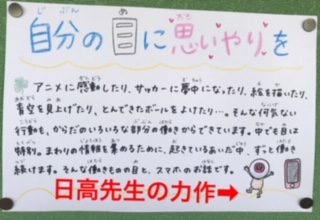 自分の目に思いやりを
アニメに感動したり、サッカーに夢中になったり、絵を描いたり、
青空を見上げたり、とんできたボールをよけたり…。そんな何気ない
行動も、からだのいろいろな部分の働きからできています。中でも目は
特別。まわりの情報を集めるために、起きているあいだ中、ずっと働き
続けます。そんな働きものの目と、スマホのお話です。
日高先生の力作➡